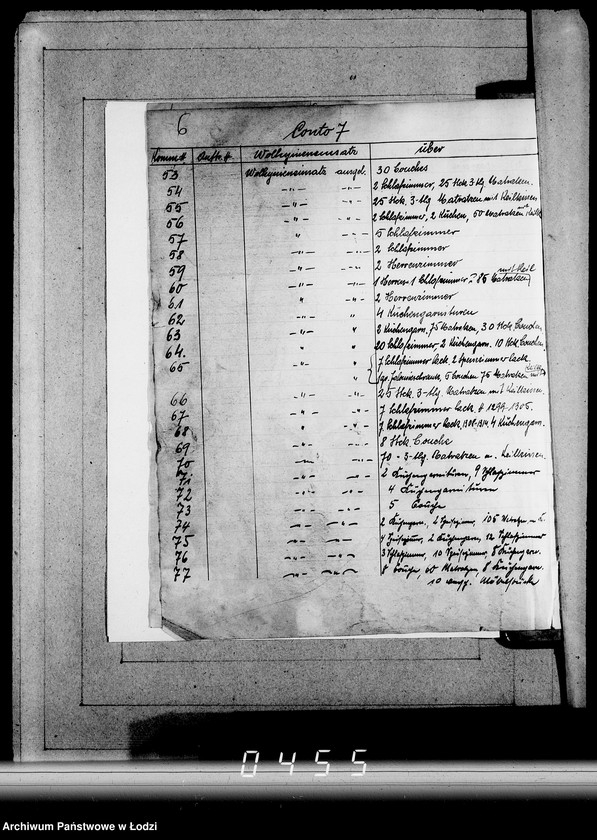 6
Conto 7
Komm # Auftr. # Wolhynieneinsatz über
53 Wolhynieneinsatz ausgel. 30 Couches
54 -"- -"- 2 Schlafzimmer, 25 Stck 3 tlg. Matratzen.
55 -"- -"- 25 Stck. 3-tlg. Matratzen mit Keilkissen
56 -"- -"- 2 Schlafzimmer, 2 Küchen, 50 Matratzen
57 " -"- 5 Schlafzimmer
58 -"- -"- 2 Schlafzimmer
59 -"- -"- 2 Herrenzimmer
mit Keil
60 -"- -"- 1 Herren 1 Schlafzimmer 85 Matratzen
61 " -"- 2 Herrenzimmer
62 -"- " 4 Küchengarnituren
63 " " 2 Küchengarn. 75 Matratzen, 30 Stck. Couches
64. " " 20 Schlafzimmer, 2 Küchengarn. 10 Stck Couches
65 " " 7 Schlafzimmer lack. 2 Speisezimmer lack.
" 5 Couchen 75 Matratzen
66 -"- -"- 25 Stck. 3-tlg. Matratzen mit Keilkissen.
67 -"- -"- 7 Schlafzimmer lack. # 1299-1305.
68 " -"- 7 Schlafzimmer lack. 1308-1314, 4 Küchengarn.
69 -"- " 8 Stck Couche
70 -"- -"- 70 - 3-tlg. Matratzen m. Keilkissen.
71 -"- -"- 2 Küchengarnituren, 9 Schlafzimmer
72 -"- -"- 4 Küchengarnituren
73 -"- -"- 5 Couche
74 -"- -"- 2 Küchengarn., 2 Speisezimmer, 105 Matratzen
75 -"- -"- 4 Speisezimmer, 2 Küchengarn, 12 Schlafzimmer
76 -"- -"- 3 Schlafzimmer, 10 Speisezimmer, 8 Küchengarn.
77 -"- -"- 8 Couche, 60 Matratzen, 8 Küchengarn.
10 Möbelstücke
0455
Archiwum Państwowe w Łodzi